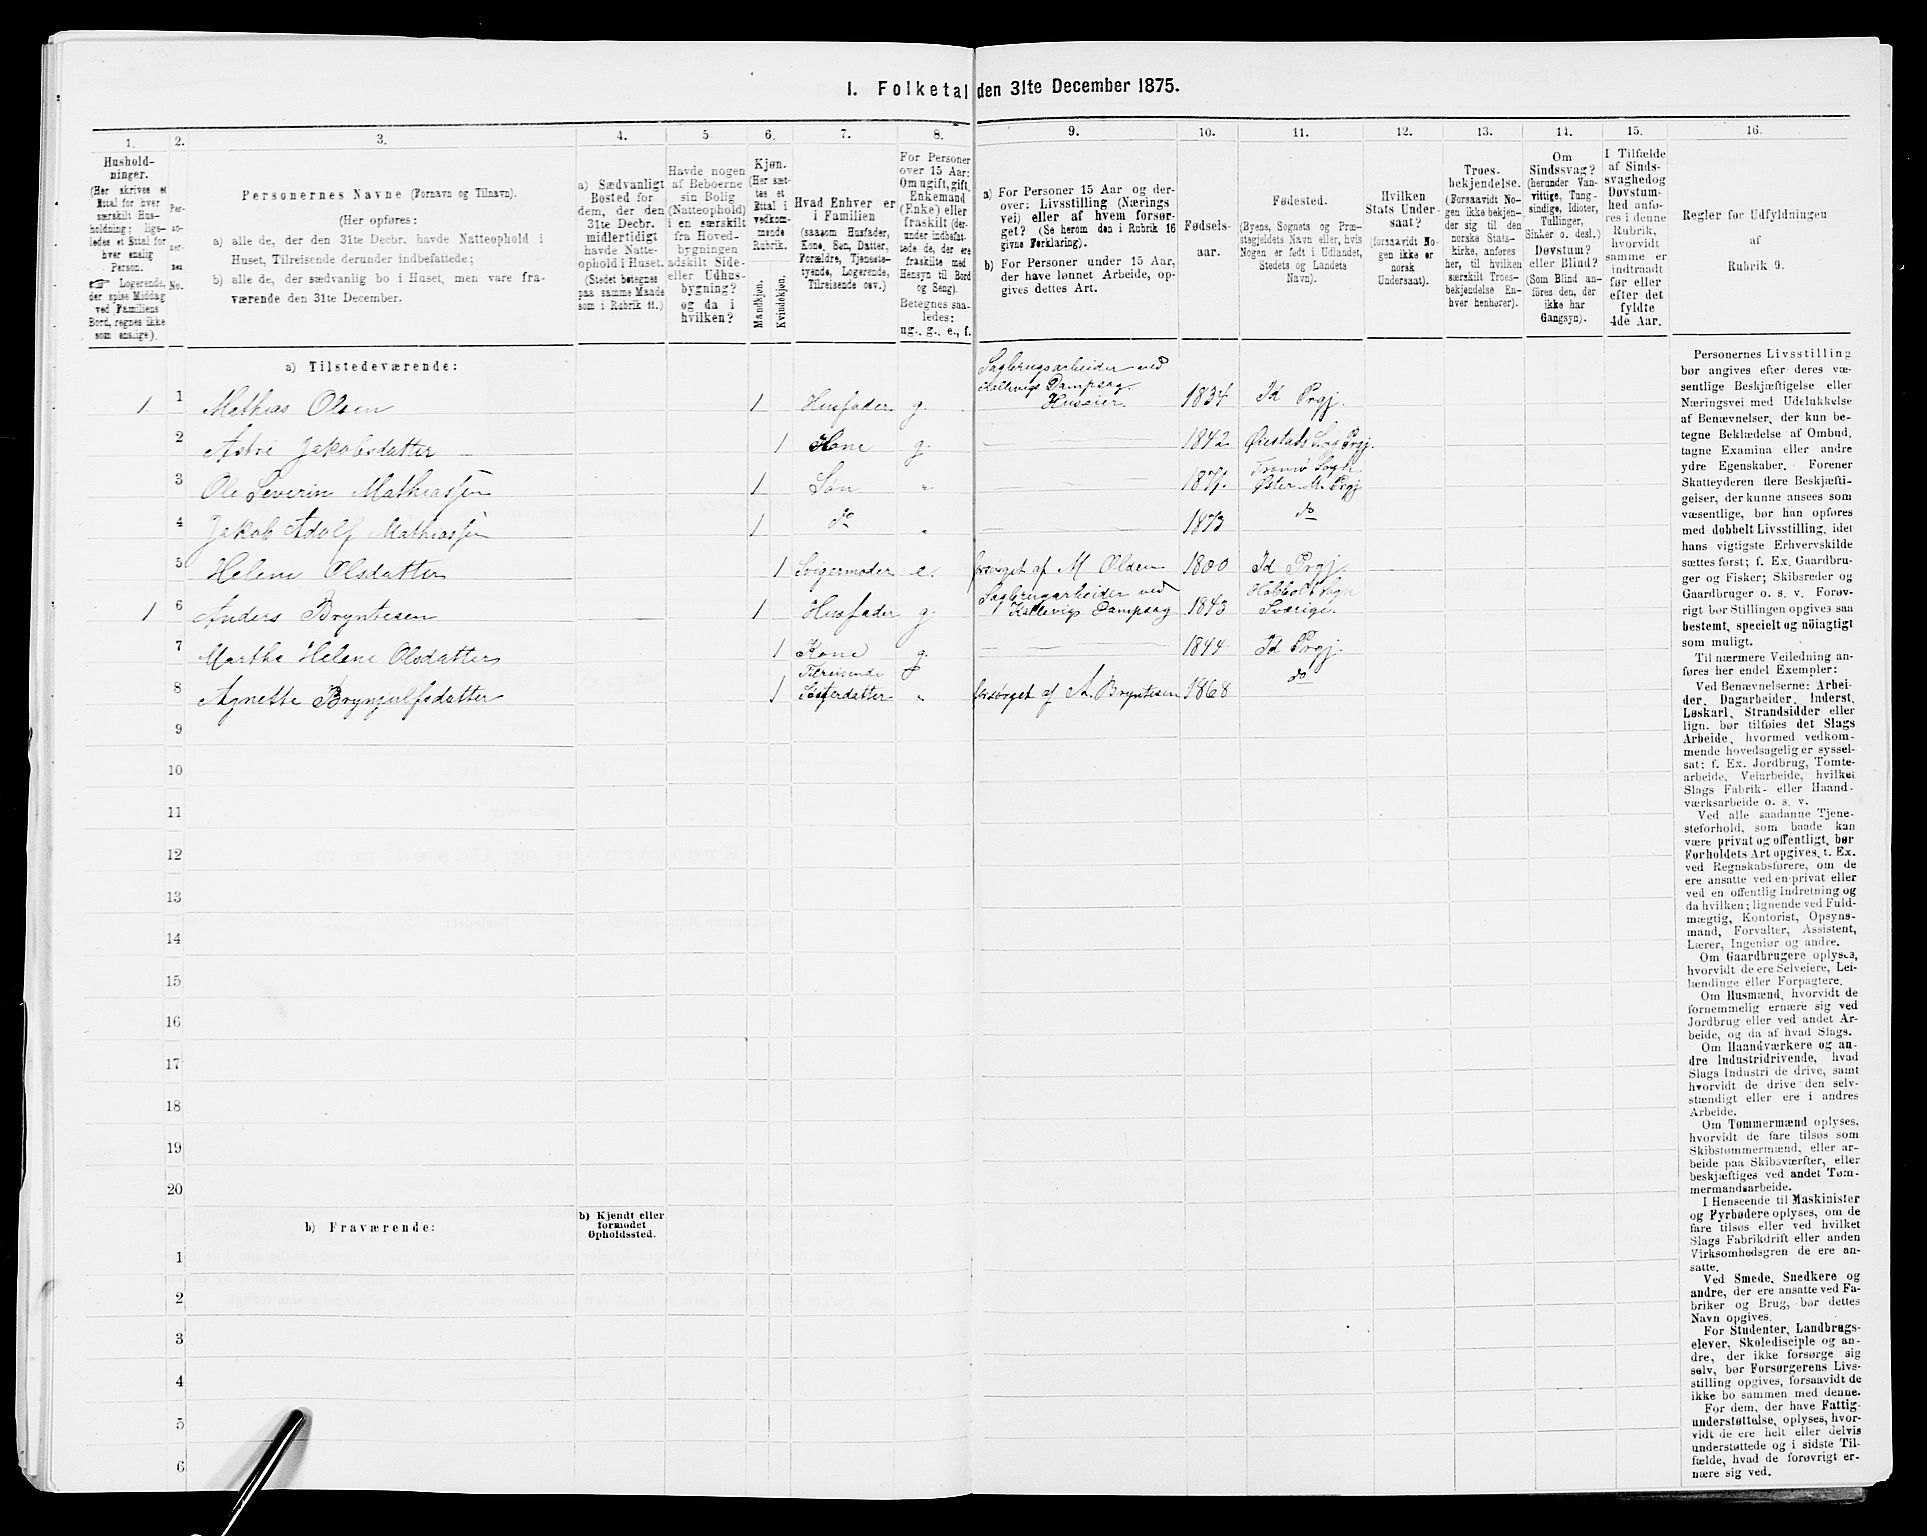 I. Folketal den 31te December 1875.
1. 2. 3. 4. 5. 6. 7. 8. 9. 10. 11. 12. 13. 14. 15. 16.
Hushold-
ninger.
(Her skrives et
Ettal for hver
særskilt Hus-
holdning; lige-
ledes et Ettal for
hver enslig
Person.
☛ Logerende,
der spise Middag
ved Familiens
Bord, regnes ikke
som enslige).
Per-
so-
ner-
nes
No.
Personernes Navne (Fornavn og Tilnavn).
(Her opføres:
a) alle de, der den 31te Decbr. havde Natteophold i
Huset, Tilreisende derunder indbefattede;
b) alle de, der sædvanlig bo i Huset, men vare fra-
værende den 31te December.
a) Sædvanligt
Bosted for
dem, der den
31te Decbr.
midlertidigt
havde Natte-
ophold i Huset.
(Stedet betegnes
paa samme Maade
som i Rubrik 11.)
Havde nogen
af Beboerne
sin Bolig
(Natteophold)
i en særskilt
fra Hoved-
bygningen
adskilt Side-
eller Udhus-
bygning?
og da i
hvilken?
Kjøn.
(Her sæt-
tes et
Ettal i
vedkom-
mende
Rubrik.
Mandkjøn.
Kvindekjøn.
Hvad Enhver er
i Familien
(saasom Husfader,
Kone, Søn, Datter,
Forældre, Tjeneste-
tyende, Logerende,
Tilreisende osv.)
For Personer
over 15 Aar:
Om ugift, gift,
Enkemand
(Enke) eller
fraskilt (der-
under indbefat-
tede de, der ere
fraskilte med
Hensyn til Bord
og Seng).
Betegnes saa-
ledes:
ug., g., e., f.
a) For Personer 15 Aar og der-
over: Livsstilling (Nærings
vei) eller af hvem forsør-
get? (Se herom den i Rubrik 16
givne Forklaring).
b) For Personer under 15 Aar,
der have lønnet Arbeide, op-
gives dettes Art.
Fødsels-
aar.
Fødested.
(Byens, Sognets og Præ-
stegjeldets Navn eller, hvis
Nogen er født i Udlandet,
Stedets og Landets
Navn).
Hvilken
Stats Under-
saat?
(forsaavidt No-
gen ikke er
norsk
Undersaat).
Troes-
bekjendelse.
(Forsaavidt No-
gen ikke bekjen-
der sig til den
norske Stats-
kirke, anføres
her, til hvilken
særskilt Troes-
bekjendelse En-
hver henhører).
Om
Sindssvag?
(herunder Van-
vittige, Tung-
sindige, Idioter,
Tullinger,
Sinker o. desl.)
Døvstum?
eller Blind?
(Som Blind an-
føres den, der
ikke har
Gangsyn).
I Tilfælde
af Sinds-
svaghed og
Døvstum-
hed anfø-
res i denne
Rubrik,
hvorvidt
samme er
indtraadt
før eller
efter det
fyldte
4de Aar.
Regler for Udfyldningen
af
Rubrik 9.
a) Tilstedeværende:
Sagbrugsarbeider ved
Kallevigs Dampsag.
1. 1 Mathias Olsen 1 Husfader g. Huseier. 1834 Id Prgj.
2 Astri Jakobsdatter 1 Kone g. — 1842 Øiestads Sog Prgj.
Tromø Sogn
3 Ole Severin Mathiassen 1 Søn " — 1871. Øster M. Prgj
4 Jakob Adolf Mathiassen 1 do " — 1873 do
5 Helene Olsdatter 1 Svigermoder e. forsørget af M Olsen 1800 Id Prgj.
Sagbrugarbeider ved
1 6 Anders Bryntesen 1 Husfader g. Kallevigs Dampsag 1843 Sverige.
7 Marthe Helene Olsdatter 1 Kone g. — 1844 Id Prgj.
Tilreisende
8 Agnette Brynjulfsdatter 1 Søsterdatter " forsørget af A. Bryntesen 1868 do
9
10
11
12
13
14
15
16
17
18
19
20
b) Fraværende:
b) Kjendt eller
formodet
Opholdssted.
1
2
3
4
5
6
Personernes Livsstilling
bør angives efter deres væ-
sentlige Beskjæftigelse eller
Næringsvei med Udelukkelse
af Benævnelser, der kun be-
tegne Beklædelse af Ombud,
tagne Examina eller andre
ydre Egenskaber. Forener
Skatteyderen flere Beskjæfti-
gelser, der kunne ansees som
væsentlige, bør han opføres
med dobbelt Livsstilling, idet
hans vigtigste Erhvervskilde
sættes først; f. Ex. Gaardbru-
ger og Fisker; Skibsreder og
Gaardbruger o. s. v. Forøv-
rigt bør Stillingen opgives saa
bestemt, specielt og nöiagtigt
som muligt.
Til nærmere Veiledning an-
føres her endel Exempler:
Ved Benævnelserne: Arbei-
der, Dagarbeider, Inderst,
Løskarl, Strandsidder eller
lign. bør tilføies det Slags
Arbeide, hvormed vedkom-
mende hovedsagelig er syssel-
sat; f. Ex. Jordbrug, Tomte-
arbeide, Veiarbeide, hvilket
Slags Fabrik- eller Haand-
værksarbeide o. s. v.
Ved alle saadanne Tjene-
steforhold, som baade kan
være privat og offentligt, bør
Forholdets Art opgives, t. Ex.
ved Regnskabsførere, om de
ere ansatte ved en privat eller
ved en offentlig Indretning og
da hvilken; lignende ved Fuld-
mægtig, Kontorist, Opsyns-
mand, Forvalter, Assistent,
Lærer, Ingeniør og andre.
Om Gaardbrugere oplyses,
hvorvidt de ere Selveiere, Lei-
lændinge eller Forpagtere.
Om Husmænd, hvorvidt de
fornemmelig ernære sig ved
Jordbrug eller ved andet Ar-
beide, og da af hvad Slags.
Om Haandværkere og an-
dre Industridrivende, hvad
Slags Industri de drive, samt
hvorvidt de drive den selv-
stændigt eller ere i andres
Arbeide.
Om Tømmermænd oplyses,
hvorvidt de fare tilsøs som
Skibstømmermænd, eller ar-
beide paa Skibsværfter, eller
beskjæftiges ved andet Tøm-
mermandsarbeide.
I Henseende til Maskinister
og Fyrbødere oplyses, om de
fare tilsøs eller ved hvilket
Slags Fabrikdrift eller anden
Virksomhedsgren de ere an-
satte.
Ved Smede, Snedkere og
andre, der ere ansatte ved Fa-
briker og Brug, bør dettes
Navn opgives.
For Studenter, Landbrugs-
elever, Skoledisciple og an-
dre, der ikke forsørge sig
selv, bør Forsørgerens Livs-
stilling opgives, forsaavidt de
ikke bo sammen med denne.
For dem, der have Fattig-
understøttelse, oplyses, hvor-
vidt de ere helt eller delvis
understøttede og i sidste Til-
fælde, hvad de forøvrigt er-
nære sig ved.